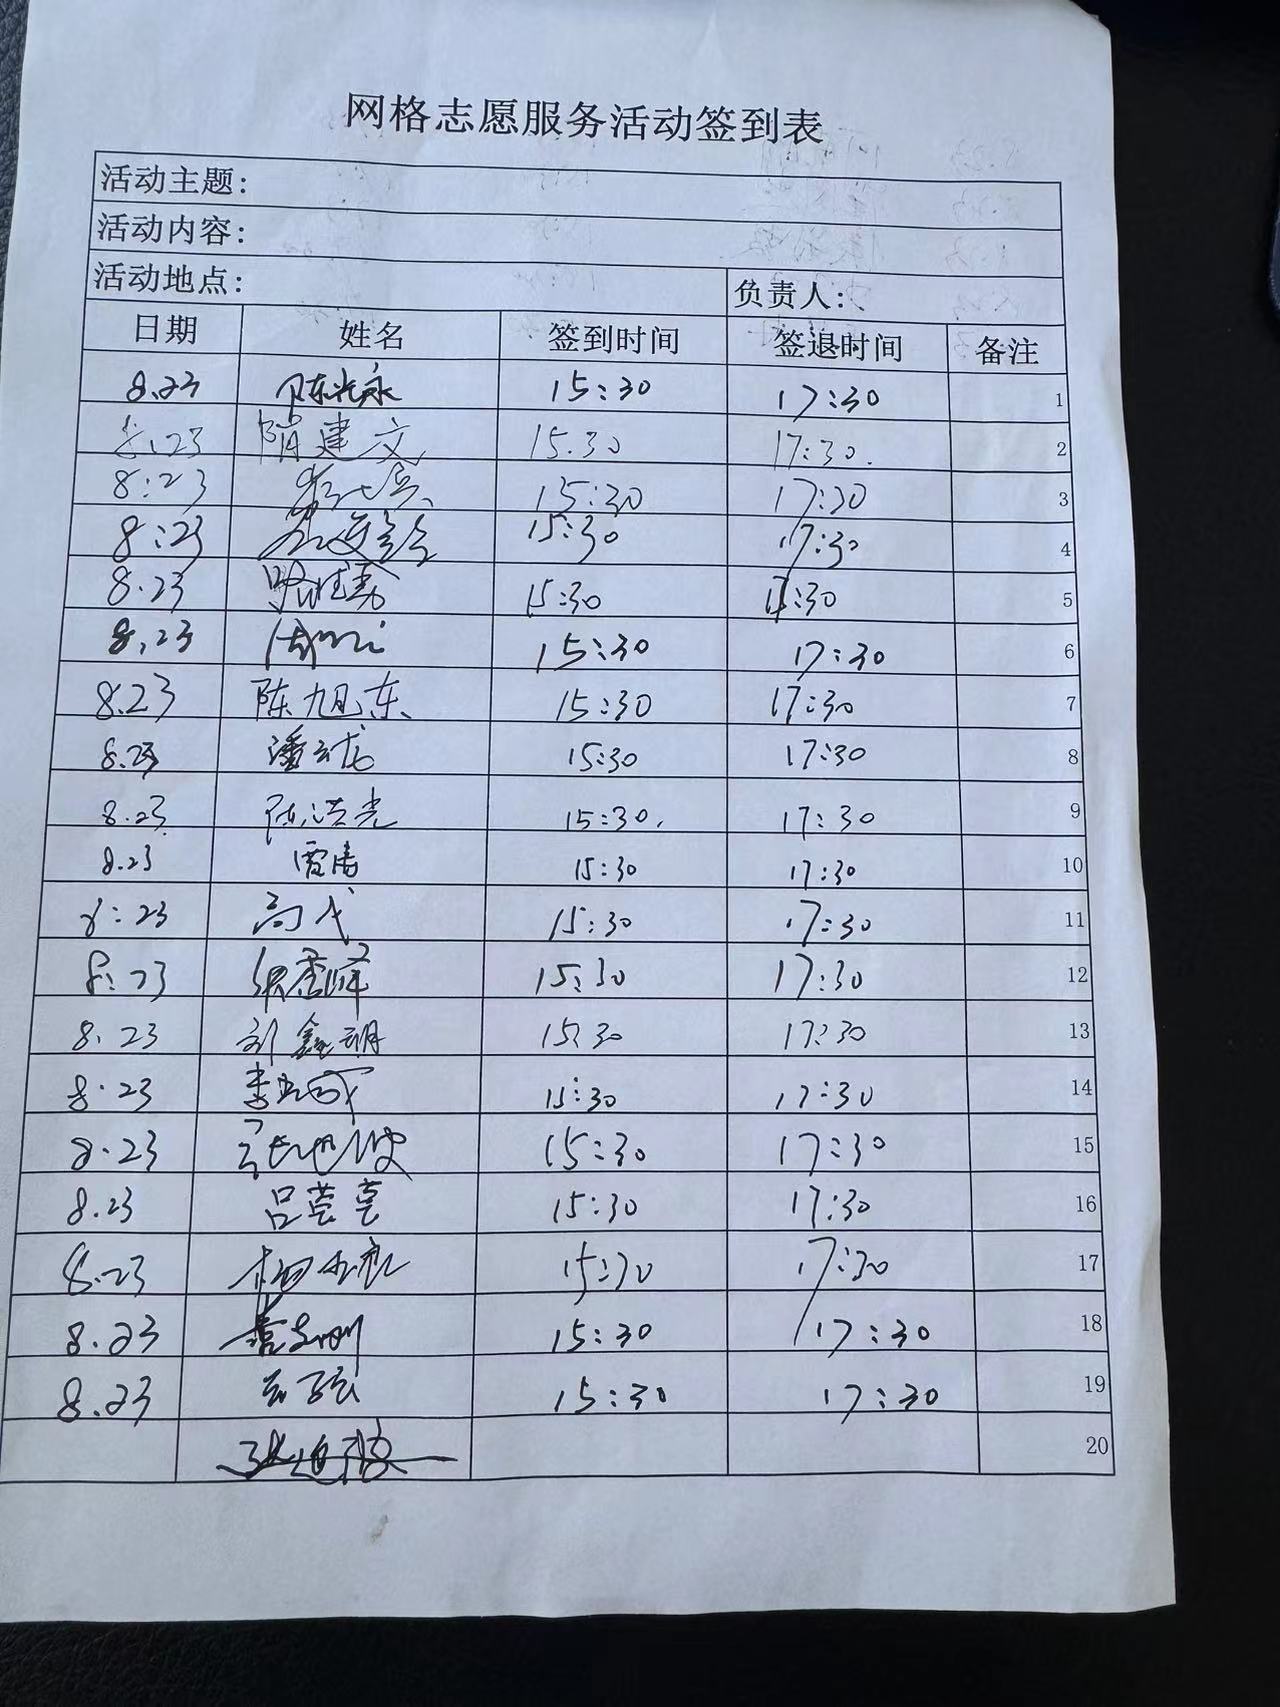 网格志愿服务活动签到表
活动主题:
活动内容:
活动地点: 负责人:
日期 姓名 签到时间 签退时间 备注
8.23 15:30 17:30 1
8.23 隋建文 15.30 17:30. 2
8:23 15:30 17:30 3
8:23 15:30 17:30 4
8.23 15:30 17:30 5
8.23 15:30 17:30 6
8.23 陈旭东 15:30 17:30 7
8.23 潘云龙 15:30 17:30 8
8.23 陈洪光 15:30. 17:30 9
8.23 雷涛 15:30 17:30 10
8:23 15:30 17:30 11
8:23 15:30 17:30 12
8.23 刘鑫玥 15:30 17:30 13
8.23 15:30 17:30 14
8.23 15:30 17:30 15
8.23 吕莹莹 15:30 17:30 16
8.23 15:30 17:30 17
8.23 15:30 17:30 18
8.23 15:30 17:30 19
20